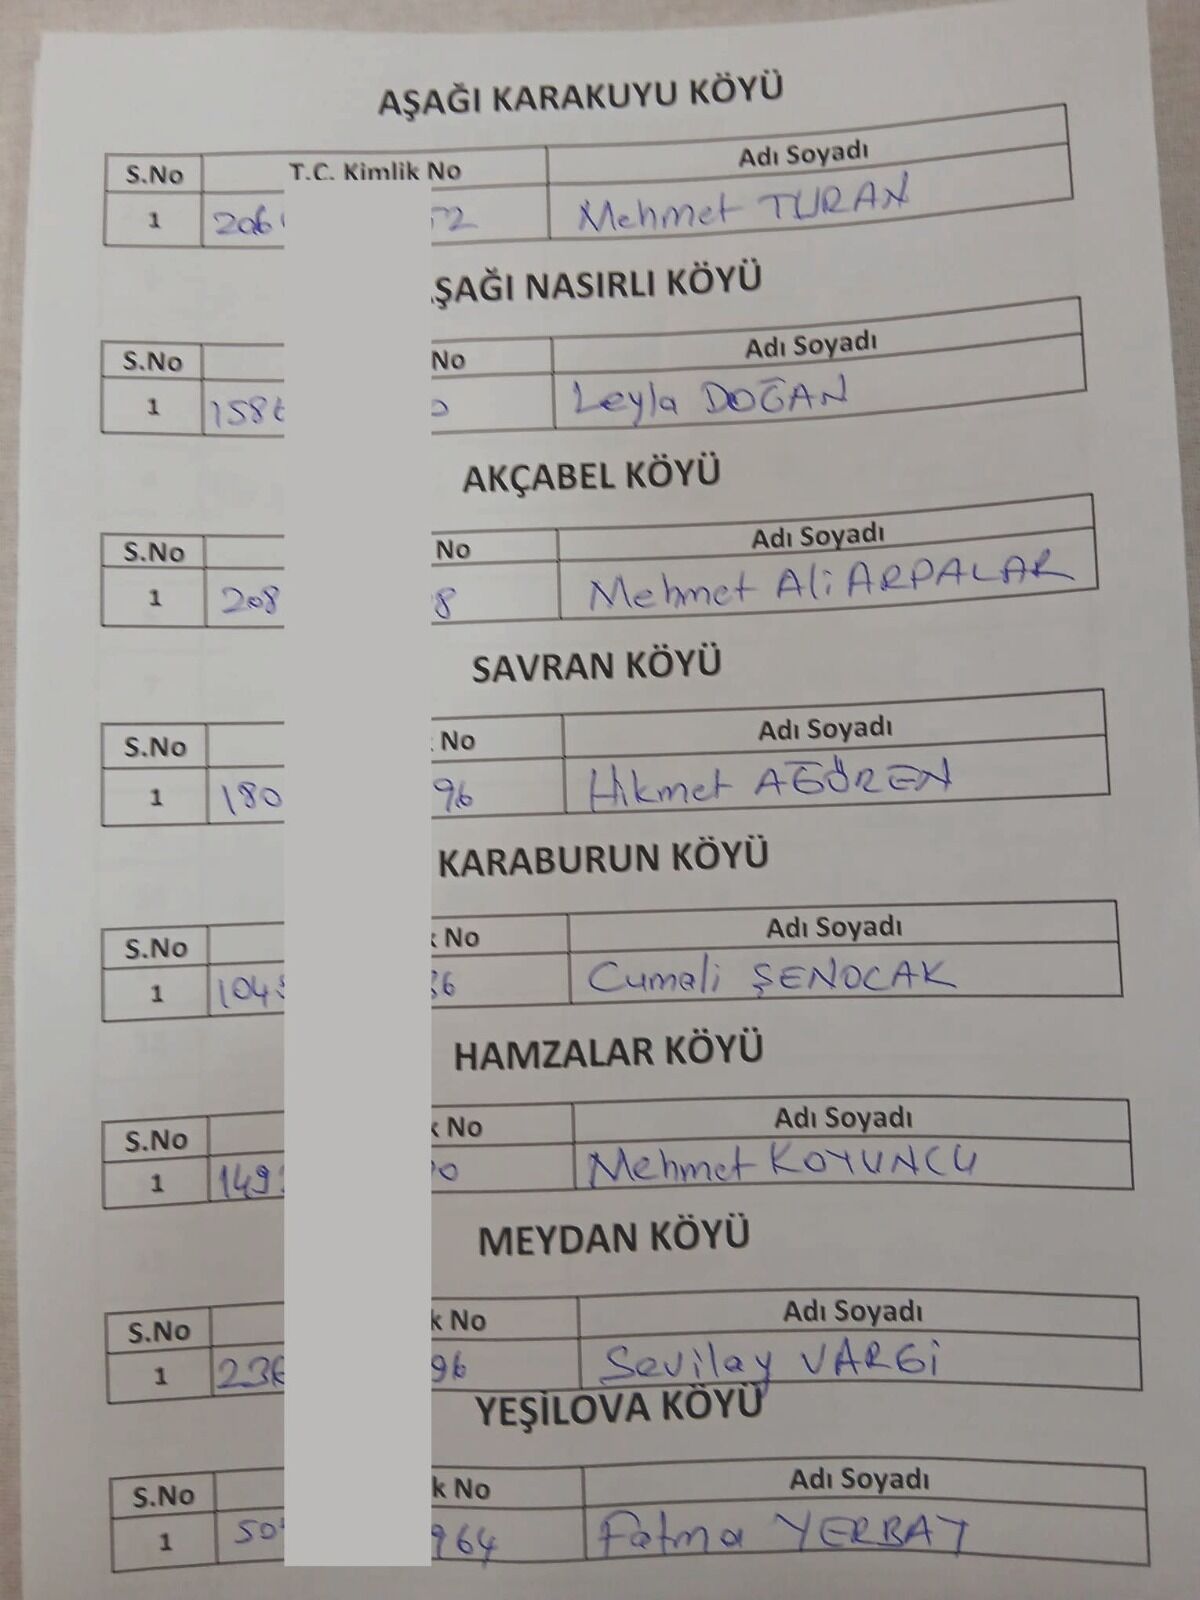 AŞAĞI KARAKUYU KÖYÜ
S.No T.C. Kimlik No Adı Soyadı
1 206 52 Mehmet TURAN
ŞAĞI NASIRLI KÖYÜ
S.No No Adı Soyadı
1 158 0 Leyla DOĞAN
AKÇABEL KÖYÜ
S.No No Adı Soyadı
1 208 8 Mehmet Ali ARPALAR
SAVRAN KÖYÜ
S.No No Adı Soyadı
1 180 96 Hikmet AĞÖREN
KARABURUN KÖYÜ
S.No k No Adı Soyadı
1 104 36 Cumali ŞENOCAK
HAMZALAR KÖYÜ
S.No k No Adı Soyadı
1 149 0 Mehmet KOYUNCU
MEYDAN KÖYÜ
S.No k No Adı Soyadı
1 236 96 Sevilay VARGİ
YEŞİLOVA KÖYÜ
S.No k No Adı Soyadı
1 50 964 Fatma YERBAY